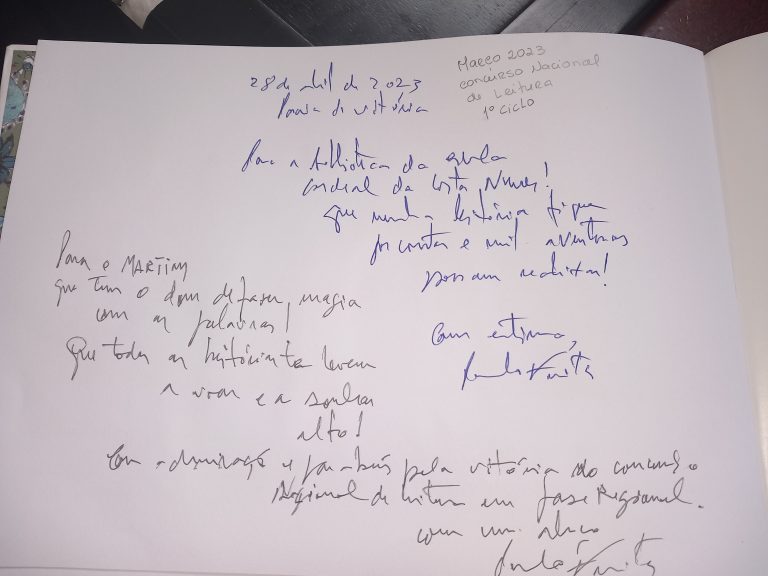 28 de abril de 2023
Praia da vitória
Março 2023
concurso Nacional
de Leitura
1º ciclo
Para a biblioteca da escola
Cardeal da Costa Nunes!
Que nenhuma história fique
por contar e mil aventuras
possam
Com estima,
Para o MARTIM
que tem o dom de fazer magia
com as palavras!
Que todas as histórias te levem
a voar e a sonhar
alto!
Com admiração e parabéns pela vitória no concurso
Nacional de leitura em fase Regional.
com um abraço